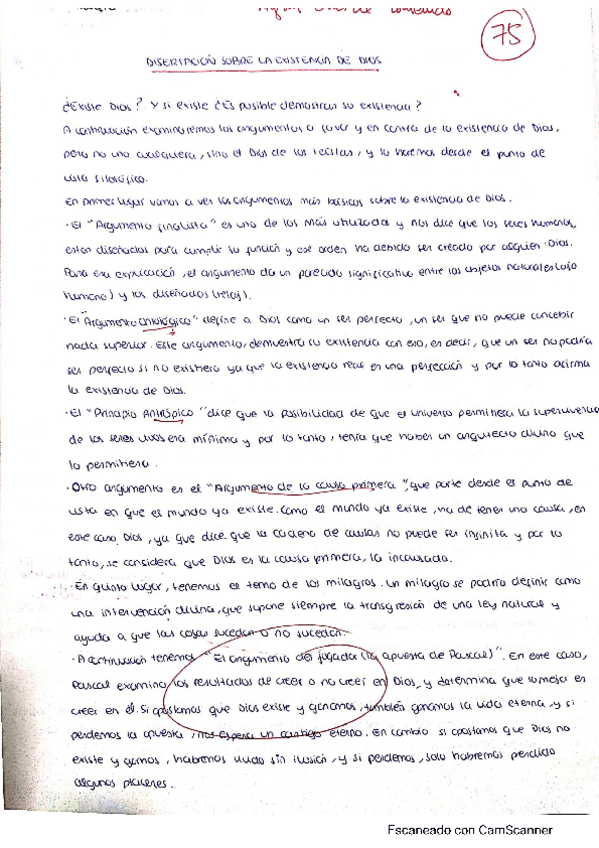 75
DISERTACIÓN SOBRE LA EXISTENCIA DE DIOS
¿Existe Dios? Y si existe ¿Es posible demostrar su existencia?
A continuación examinaremos los argumentos a favor y en contra de la existencia de Dios,
pero no uno cualquiera, sino el Dios de los teístas, y lo haremos desde el punto de
vista filosófico.
En primer lugar vamos a ver los argumentos más básicos sobre la existencia de Dios.
· El "Argumento finalista" es uno de los más utilizados y nos dice que los seres humanos,
están diseñados para cumplir su función y ese orden ha debido ser creado por alguien: Dios.
Para esa explicación, el argumento da un parecido significativo entre los objetos naturales (ojo
humano) y los diseñados (reloj).
· El "Argumento ontológico" define a Dios como un ser perfecto, un ser que no puede concebir
nada superior. Este argumento, demuestra su existencia con eso, es decir, que un ser no podría
ser perfecto si no existiera ya que la existencia real es una perfección y por lo tanto afirma
la existencia de Dios.
· El "Principio Antrópico" dice que la posibilidad de que el universo permitiera la supervivencia
de los seres vivos era mínima y por lo tanto, tenía que haber un arquitecto divino que
lo permitiera.
· Otro argumento es el "Argumento de la causa primera", que parte desde el punto de
vista en que el mundo ya existe. Como el mundo ya existe, ha de tener una causa, en
este caso Dios, ya que dice que la cadena de causas no puede ser infinita y por lo
tanto, se considera que Dios es la causa primera, la incausada.
· En quinto lugar, tenemos el tema de los milagros. Un milagro se podría definir como
una intervención divina, que supone siempre la transgresión de una ley natural y
ayuda a que las cosas sucedan o no sucedan.
· A continuación tenemos "El argumento del jugador (la apuesta de Pascal)". En este caso,
Pascal examina los resultados de creer o no creer en Dios, y determina que lo mejor es
creer en él. Si apostamos que Dios existe y ganamos, también ganamos la vida eterna, y si
perdemos la apuesta, nos espera un castigo eterno. En cambio si apostamos que Dios no
existe y ganamos, habremos vivido sin ilusión, y si perdemos, solo habremos perdido
algunos placeres.
Escaneado con CamScanner